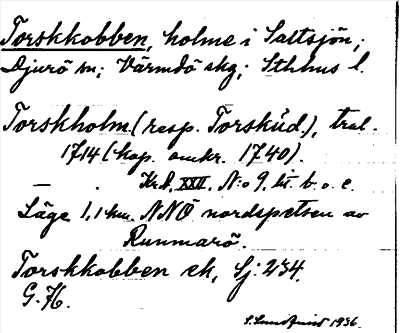 Torskkobben, holme i Saltsjön;
Djurö sn; Värmdö skg; Sthlms l.
Torskholm (resp. Torskiid.), tral.
1714 (kop. omkr. 1740).
— Kr.A. XXII. N:o 9. lit b. o. c.
Läge 1,1 km. NNO nordspetsen av
Runmarö.
Torskkobben ek, Sj: 234.
G. 76.
1936.